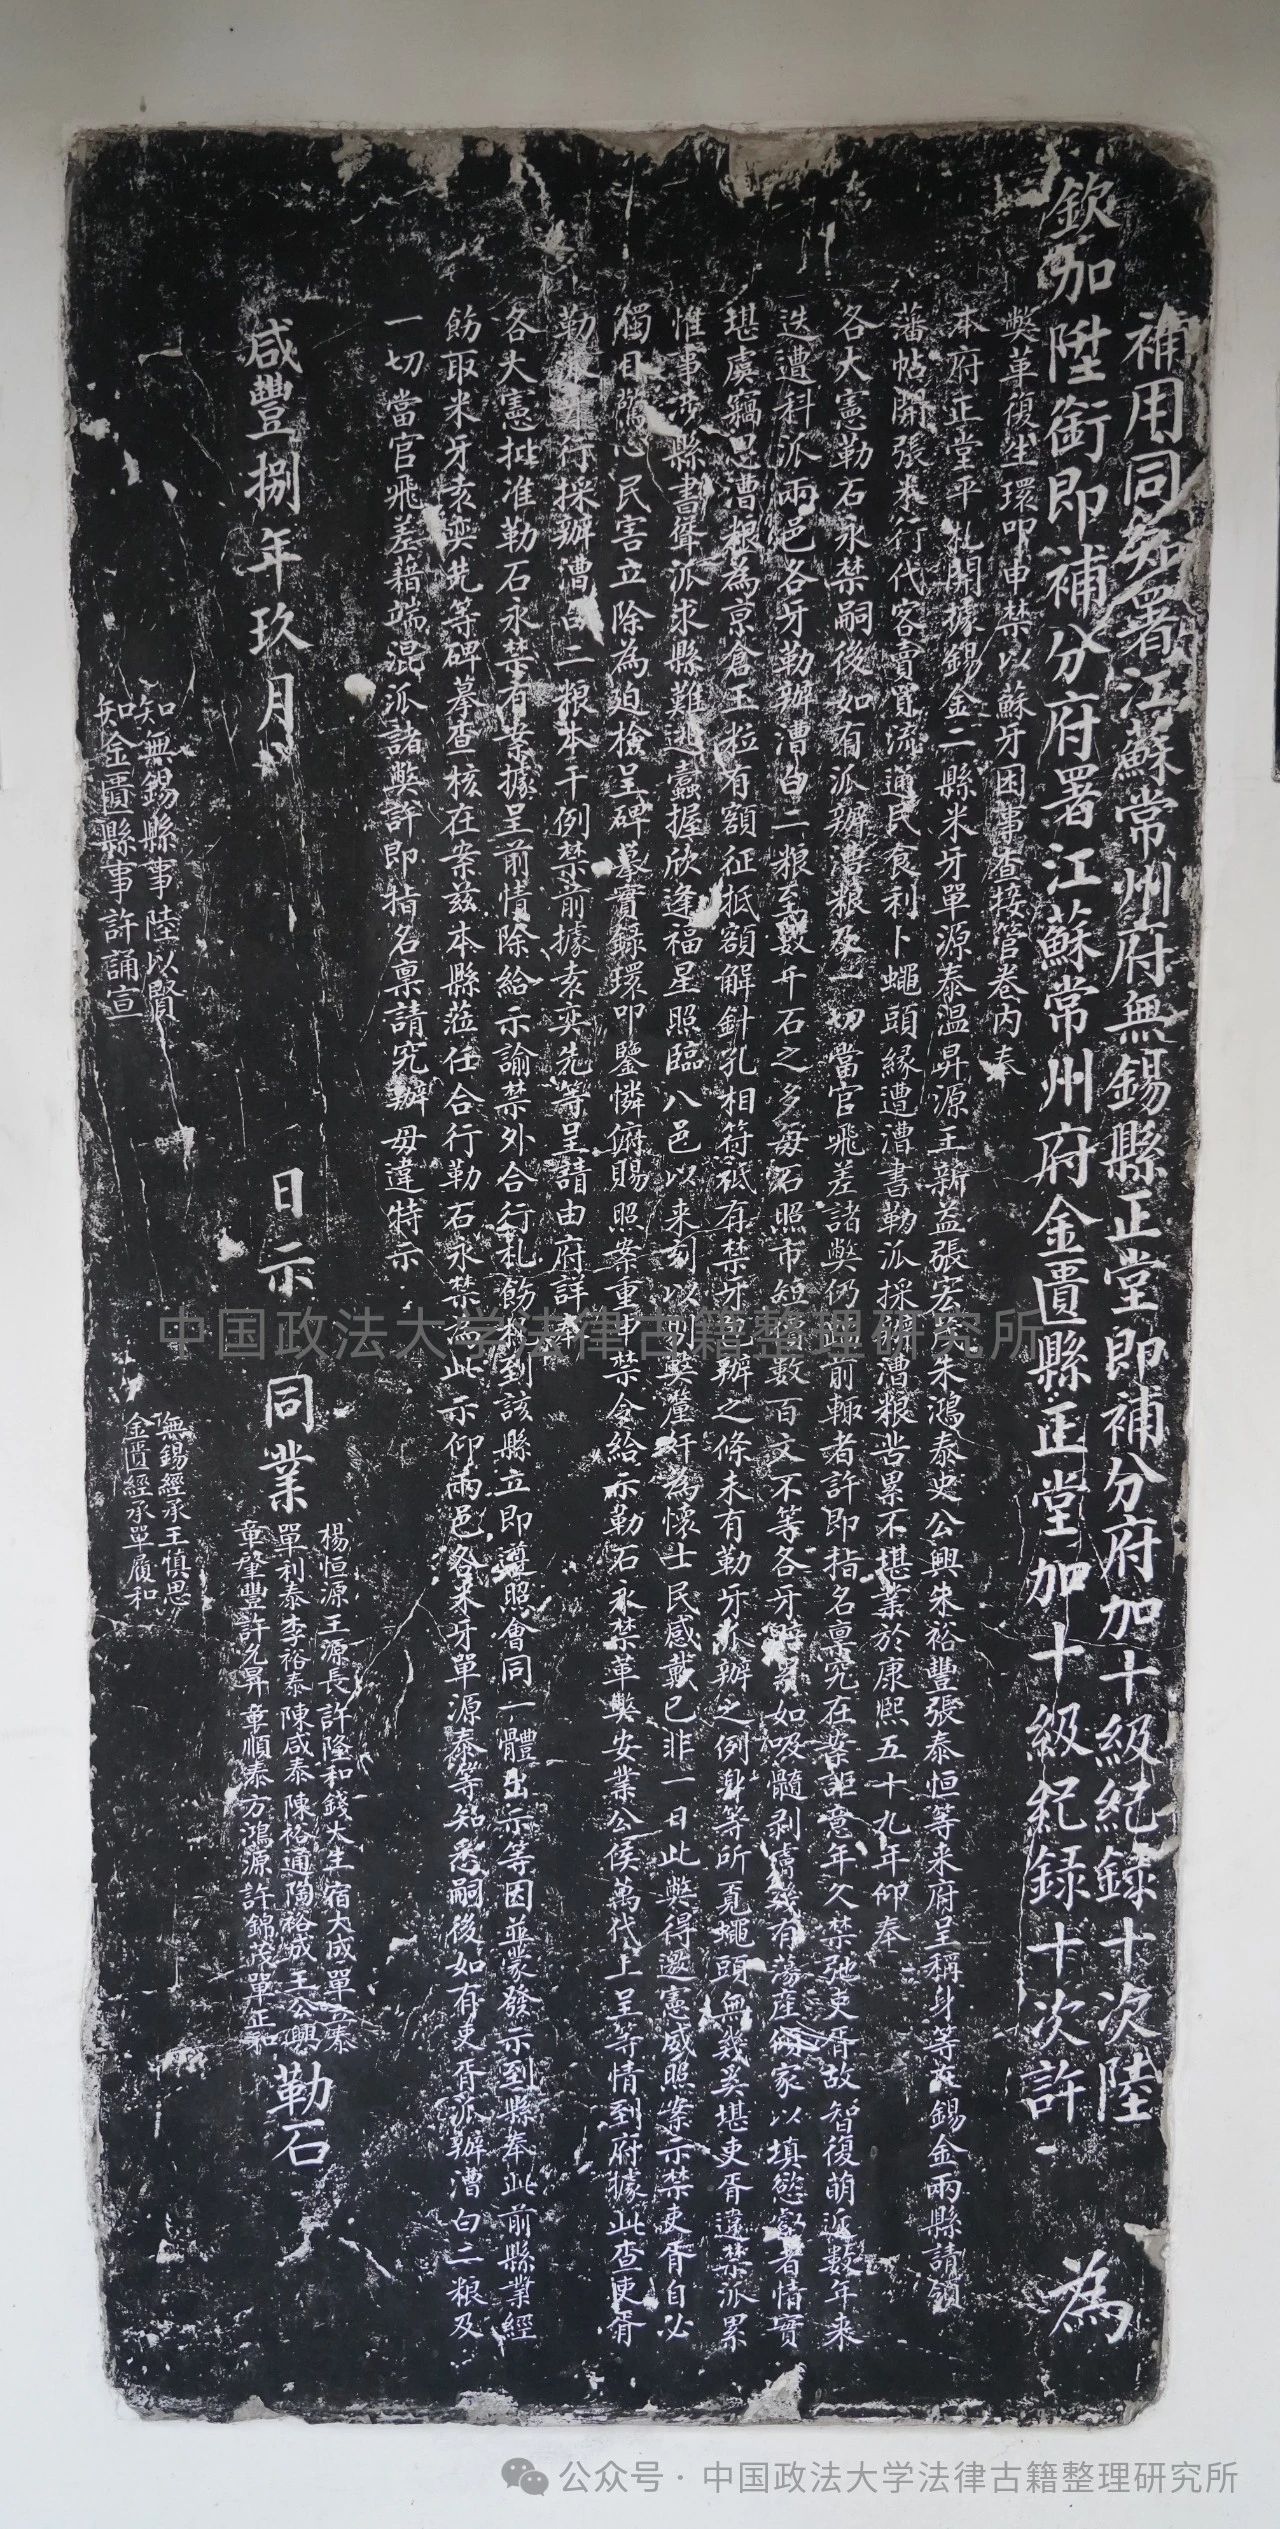 補用同知署江蘇常州府無錫縣正堂即補分府加十級紀錄十次陸
欽加陞銜即補分府署江蘇常州府金匱縣正堂加十級紀録十次許 為
弊革復生環叩申禁以蘇牙困事查接管卷內奉
本府正堂平札開據錫金二縣米牙單源泰溫昇源王新益張宏 朱鴻泰史公興朱裕豐張泰恒等來府呈稱身等在錫金兩縣請領
藩帖開張米行代客賣買流通民食利卜蠅頭緣遭漕書勒派採辦漕粮苦累不堪業於康熙五十九年仰奉
各大憲勒石永禁嗣後如有派辦漕粮及一切當官飛差諸弊仍蹈前轍者許即指名禀究在案詎意年久禁弛吏胥故智復萌派數年來
迭遭科派兩邑各牙勒辦漕白二粮至數千石之多每石照市短價數百文不等各牙賠累如吸髓剥膚幾有蕩產傾家以填慾壑者情實
堪虞竊思漕粮為京倉玉粒有額征抵額解針孔相符祗有禁牙包辦之條未有勒牙承辦之例身等所覓蠅頭無幾奚堪吏胥違禁派累
惟事涉縣書聳派求縣難逃蠹握欣逢福星照臨八邑以来刻以 弊釐奸為懷士民感戴已非一日此弊得邀憲威照案示禁吏胥自必
觸目驚心民害立除為迫檢呈碑摹實錄環叩鑒憐俯賜照案重申禁令給示勒石永禁革弊安業公侯萬代上呈等情到府據此查吏胥
勒 米行採辦漕白二粮本干例禁前據索奕先等呈請由府詳奉
各大憲批准勒石永禁有案據呈前情除給示諭禁外合行札飭札到該縣立即遵照會同一體出示等因並蒙發示到縣奉此前縣業經
飭取米牙袁奕先等碑摹查核在案兹本縣蒞任合行勒石永禁為此示仰兩邑各米牙單源泰等知悉嗣後如有吏胥派辦漕白二粮及
一切當官飛差藉端混派諸弊許即指名禀請究辦毋違特示
咸豐捌年玖月 日示 同業
楊恒源王源長許隆和錢大生宿大成單 泰
單利泰李裕泰陳咸泰陳裕通陶裕成王公興
章肇豐許允昇章順泰方鴻源許錦茂單正和
勒石
知無錫縣事陸以賢
知金匱縣事許誦宣
無錫經承王慎思
金匱經承單履和
中国政法大学法律古籍整理研究所
公众号·中国政法大学法律古籍整理研究所